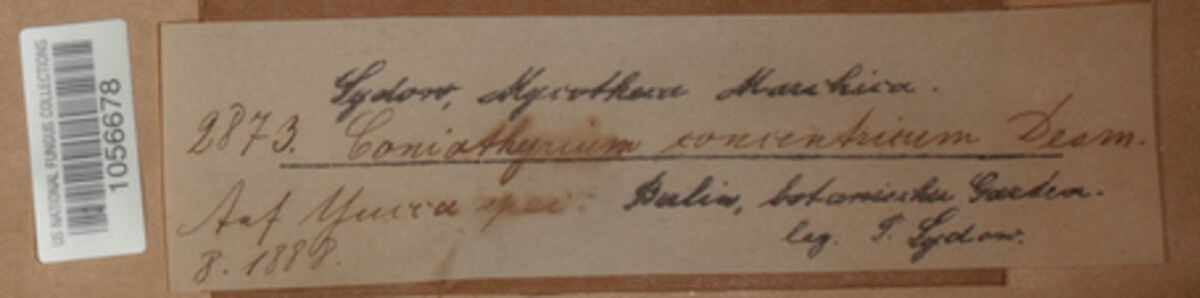 US NATIONAL FUNGUS COLLECTIONS
1056678
Sydow, Mycotheca Marchica.
2873. Coniothyrium concentricum Desm.
Auf Yucca spec. Berlin, botanischer Garten.
8. 1888. leg. P. Sydow.